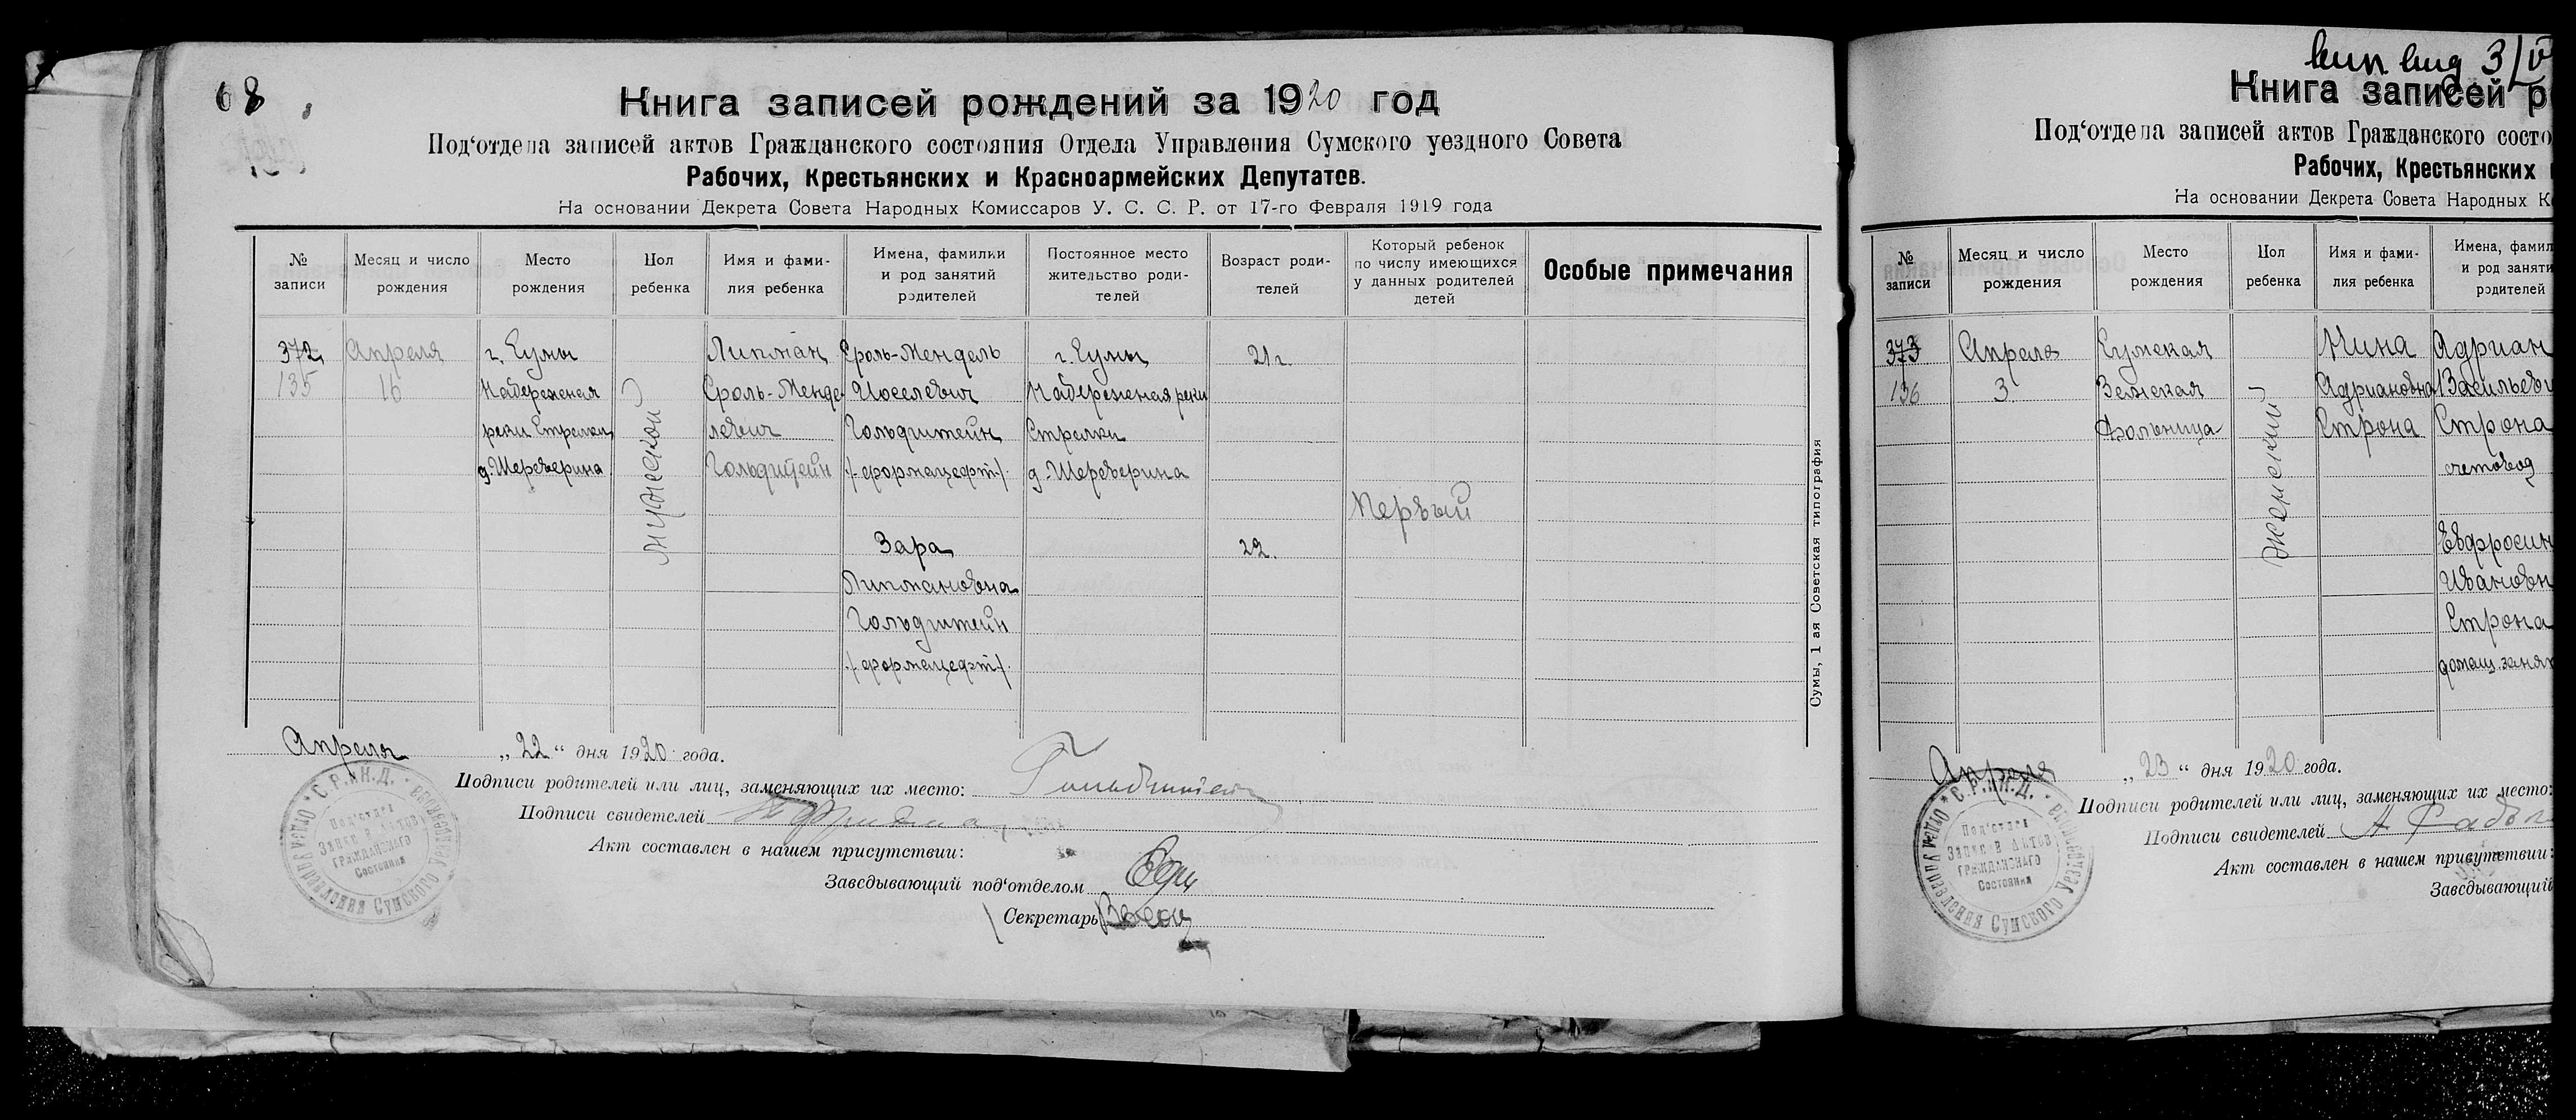 68
Книга записей рождений за 1920 год
Под‘отдела записей актов Гражданского состояния Отдела Управления Сумского уездного Совета
Рабочих, Крестьянских и Красноармейских Депутатов.
На основании Декрета Совета Народных Комиссаров У. С. С. Р. от 17-го Февраля 1919 года
№ записи
Месяц и число рождения
Место рождения
Пол ребенка
Имя и фамилия ребенка
Имена, фамилии и род занятий родителей
Постоянное место жительство родителей
Возраст родителей
Который ребенок по числу имеющихся у данных родителей детей
Особые примечания
372 Апреля г. Сумы Липман Сроль-Мендель г. Сумы 21 г.
135 16 Набережная Сроль-Менде Иоселевич Набережная реки
реки Стрелки левич Гольдштейн Стрелки
д. Шереверина Гольдштейн /фармацефт/ д. Шереверина
мужской
Первый
Зара 22.
Липмановна
Гольдштейн
/фармацефт/
Сумы, 1 ая Советская типография
Апреля „22“ дня 1920 года.
Подписи родителей или лиц, заменяющих их место: Гольдштейн
Подписи свидетелей
Акт составлен в нашем присутствии:
Заведывающий под‘отделом
Секретарь
Отдела Управления Сумского Уездного
С.Р. и К.Д.
Под‘отдел
Записей Актов
Гражданского
Состояния
3/V
Книга записей р
Под‘отдела записей актов Гражданского состо
Рабочих, Крестьянских
На основании Декрета Совета Народных К
№ записи
Месяц и число рождения
Место рождения
Пол ребенка
Имя и фамилия ребенка
Имена, фамил
и род заняти
родителей
373 Апреля Сумская Нина Адриан
136 3 Земская Адриановна Васильеви
больница Строна Строна
счетовод
женский
Евфросин
Ивановн
Строна
домаш. занят
Апреля „23“ дня 1920 года.
Подписи родителей или лиц, заменяющих их место:
Подписи свидетелей
Акт составлен в нашем присутствии:
Заведывающий
Отдела Управления Сумского Уездного
С.Р. и К.Д.
Под‘отдел
Записей Актов
Гражданского
Состояния